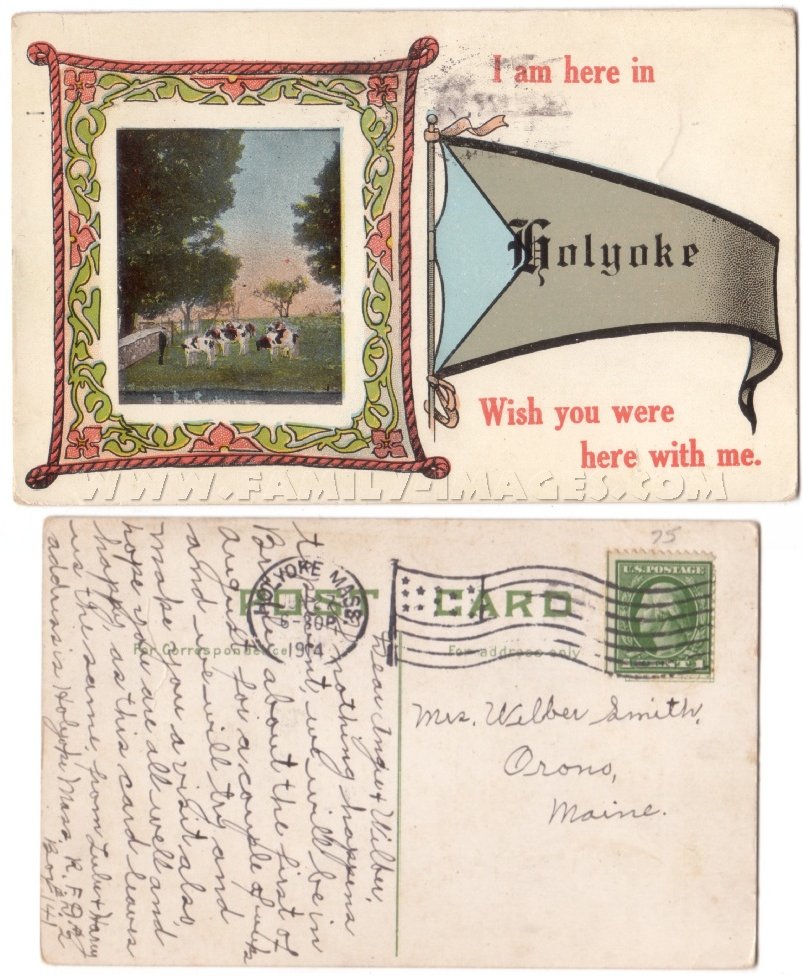 I am here in
Holyoke
Wish you were
here with me.
WWW.FAMILY-IMAGES.COM
75
POST CARD
For Correspondence
For address only
HOLYOKE MASS.
1914
U.S. POSTAGE
Mrs. Wilber Smith,
Orono,
Maine.
Dear Inge & Wilber,
If nothing happens
to prevent, we will be in
about the first of
August for a couple of wks
and we will try and
make you a visit also,
hope you are all well and
happy, as this card leaves
us the same, from Lulu & Harry
address is Holyoke Mass. R.F.D. #2
Box 141